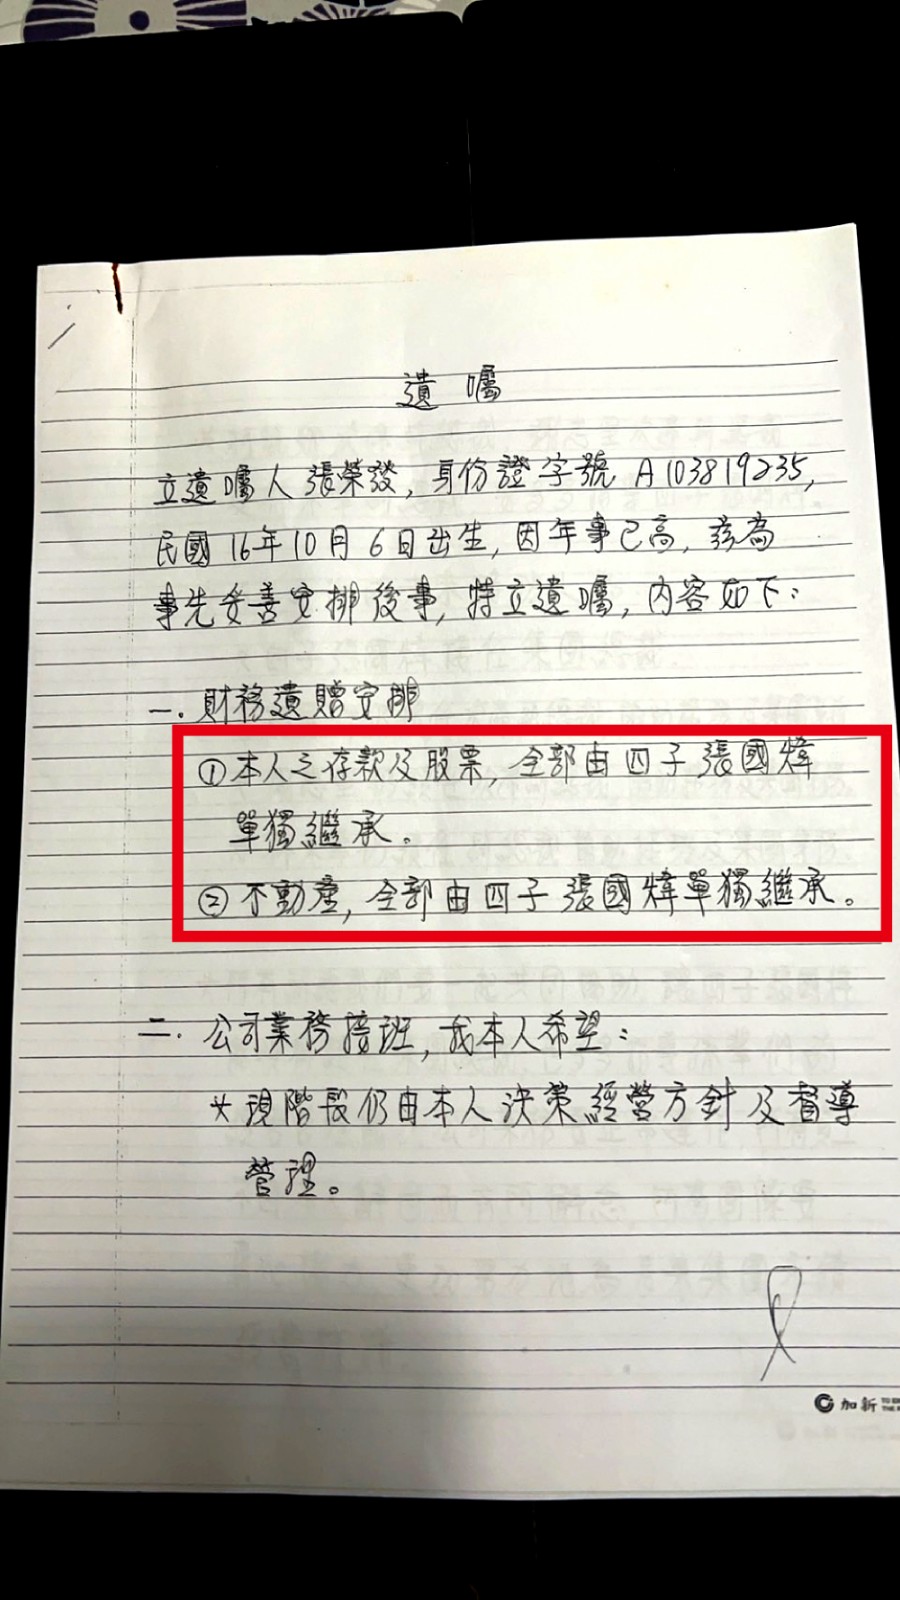 遺囑
立遺囑人張榮發,身份證字號A103819235,
民國16年10月6日出生,因年事已高,茲為
事先妥善安排後事,特立遺囑,內容如下:
一.財務遺贈安排
①本人之存款及股票,全部由四子張國煒
單獨繼承。
②不動產,全部由四子張國煒單獨繼承。
二.公司業務接班,我本人希望:
*現階段仍由本人決策經營方針及督導
管理。
加新